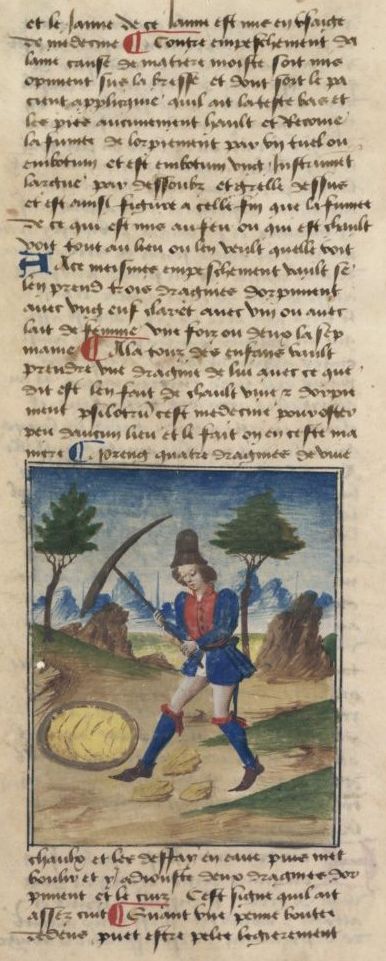 et le Janne de ce Janne est mis en vsaige
de medecine ¶ Contre empeschement da
laine causé de matiere moiste soit mis
opiment sus la bresse et dont soit le pa
cient applicquie quil ait la teste bas et
les pies aucunement hault et recoiue
la fumee de lorpiement par vn tuel ou
embotum et est embotum vng Instrumet
largue par dessoubz et grelle dessus
et est ainsi figure a celle fin que la fumee
de ce qui est mis au feu ou qui est chault
voit tout au lieu ou len veult quelle voit
A Ace meismes empeschement vault se
len prend trois dragmes dorpiment
auec vng euf claret auec vin ou auec
lait de femme vne fois ou deux la sep
maine ¶ Ala toux des enfans vault
prendre vne dragme de lui auec ce que
dit est len fait de chault viue z dorpie
ment psilotru cest medecine pour oster
peu daucun lieu et le fait on en ceste ma
niere ¶ prenez quatre dragmes de viue
chaulx et les deffay en eaue puis met
boulir et y adiouste deux dragmes dor
piment et le cuis Cest signe quil ait
asses cuit ¶ Quant vne penne boutee
dedens puet estre pelee legierement